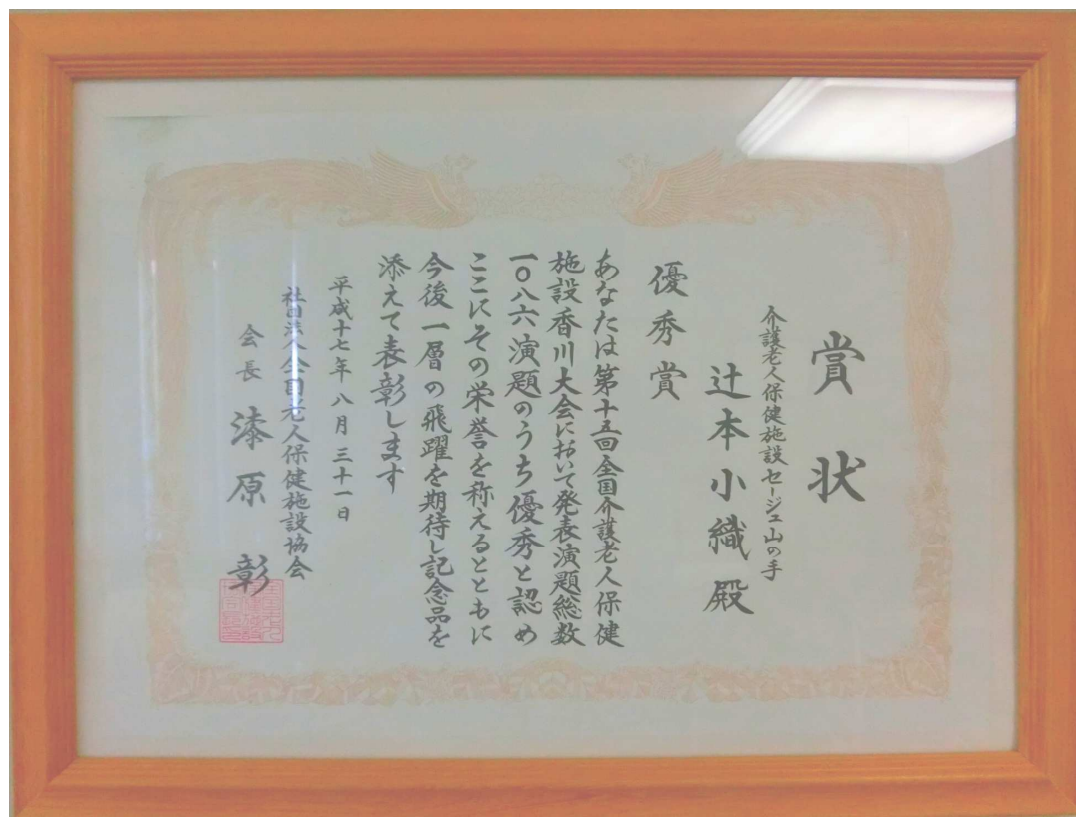 賞状
介護老人保健施設セージュ山の手
辻本小織殿
優秀賞
あなたは第十五回全国介護老人保健
施設香川大会において発表演題総数
一〇八六演題のうち優秀と認め
ここにその栄誉を称えるとともに
今後一層の飛躍を期待し記念品を
添えて表彰します
平成十七年八月三十一日
社団法人全国老人保健施設協会
会長 漆原 彰